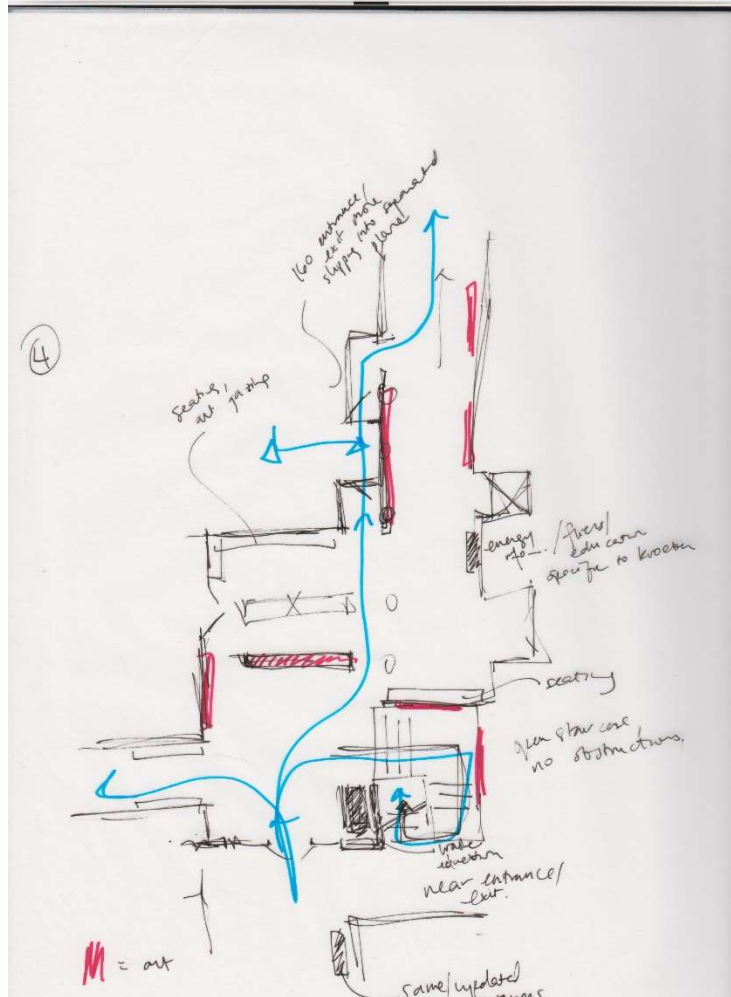 160 entrance/
exit more
slipping into separated
plane
4
seating,
art
energy
info /
education
specific to
seating
open staircase
no obstructions.
education
near entrance/
exit.
= art
same/updated